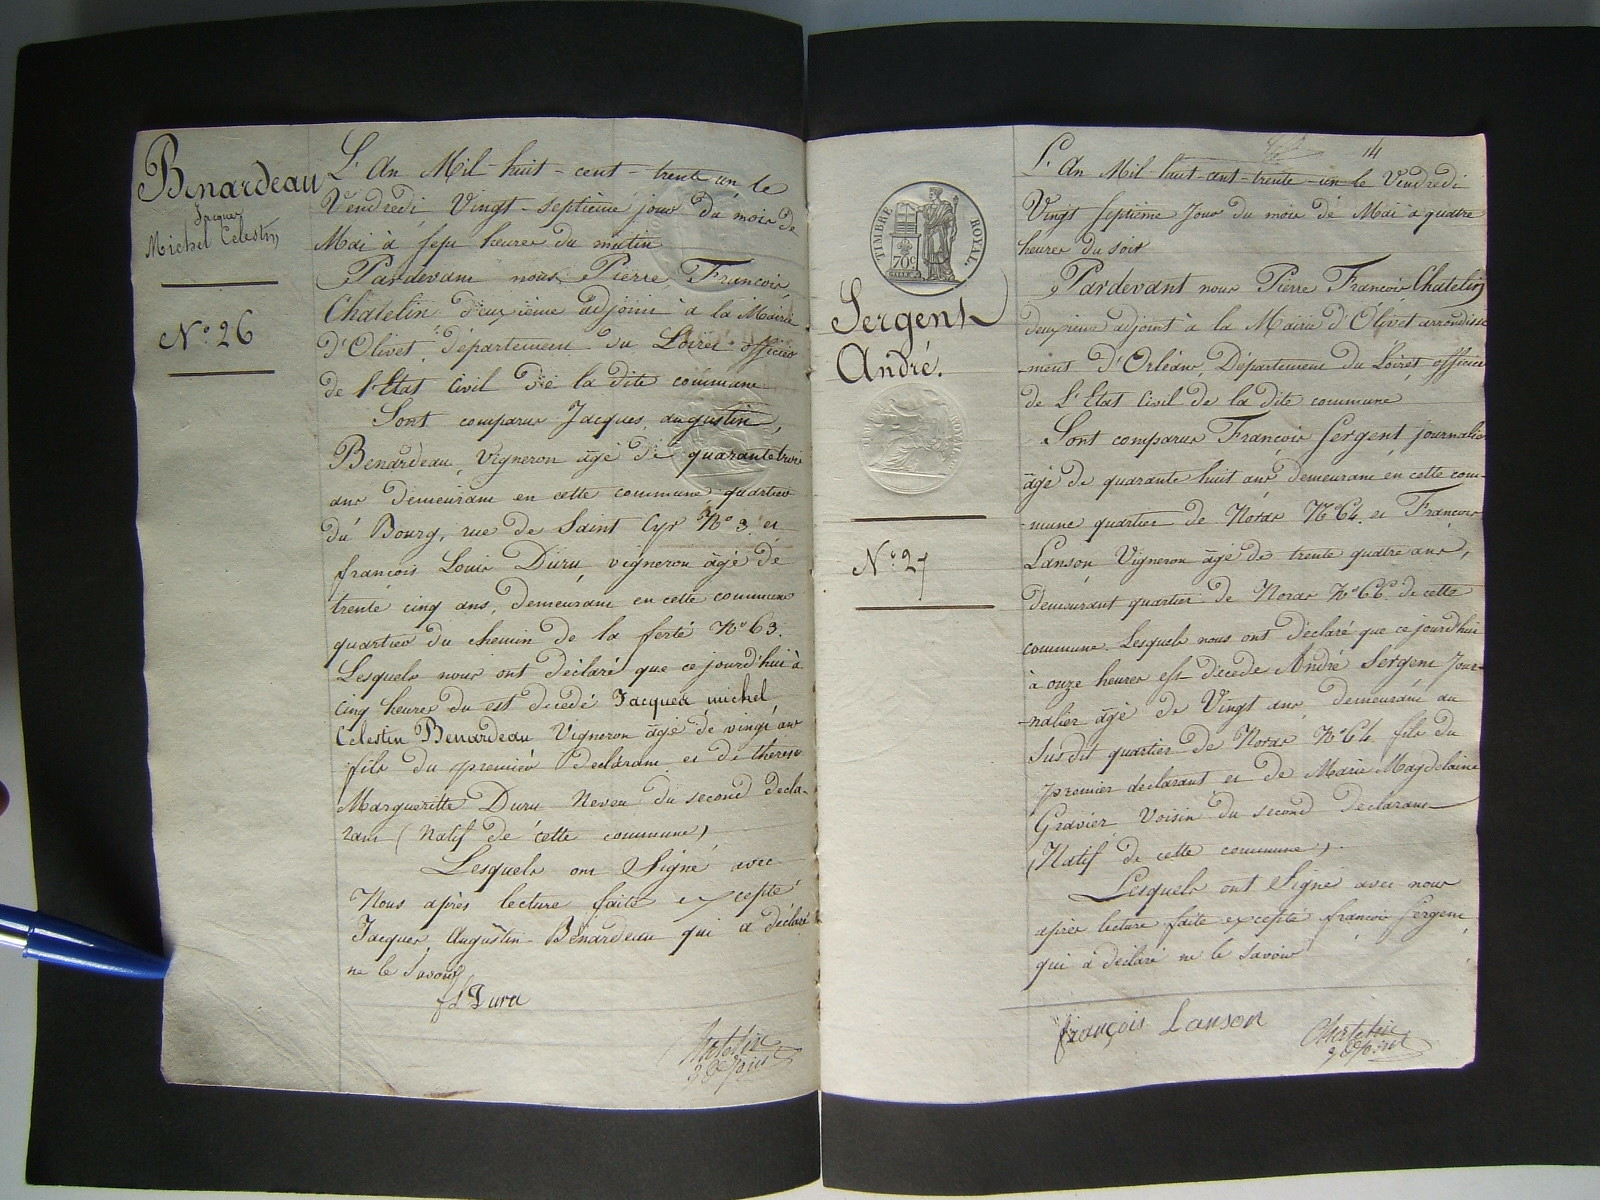 Benardeau
Jacques
Michel Celestin
N° 26
L'An Mil-huit-cent-trente un le
Vendredi Vingt-septieme jour du mois de
Mai à sept heures du matin
Pardevant nous Pierre François
Chatelin deuxième adjoint à la Mairie
d'Olivet, département du Loiret officier
de l'Etat Civil de la dite commune
Sont comparus Jacques, augustin,
Benardeau, Vigneron âgé de quarante trois
ans demeurant en cette commune quartier
du Bourg, rue de Saint Cyr N° 3. et
françois Louis Duru vigneron âgé de
trente cinq ans, demeurant en cette commune
quartier du chemin de la ferté N° 63.
Lesquels nous ont déclaré que ce jourd'hui à
cinq heures du est décédé Jacques michel
Celestin Benardeau Vigneron âgé de vingt ans
fils du premier Déclarant et de thérèse
Margueritte Duru Neveu du second décla-
rant (Natif de cette commune)
Lesquels ont Signé avec
Nous après lecture faite excepté
Jacques, Augustin Benardeau qui a déclaré
ne le Savoir
fs Duru
Chatelin
14
TIMBRE ROYAL.
70c
Sergent
André.
N° 27
L'An Mil-huit-cent-trente-un le Vendredi
Vingt Septième Jour du mois de Mai à quatre
heures du soir
Pardevant nous Pierre François Chatelin
deuxieme adjoint à la Mairie d'Olivet arrondisse
-ment d'Orléans, Département du Loiret, officier
de L'Etat Civil de la dite commune
Sont comparus François Sergent journalier
âgé de quarante huit ans demeurant en cette com-
-mune quartier de Noras N° 64. et François
Lanson Vigneron âgé de trente quatre ans,
demeurant quartier de Noras N° 66 de cette
commune. Lesquels nous ont déclaré que ce jourd'hui
à onze heures est décédé André Sergent Jour-
-nalier âgé de Vingt ans demeurant au
Susdit quartier de Noras N° 64 fils du
premier déclarant et de Marie Magdelaine
Gravier Voisin du second Déclarant
(Natif de cette commune).
Lesquels ont Signé avec nous
après lecture faite excepté françois Sergent
qui a déclaré ne le Savoir
françois Lanson
Chatelin